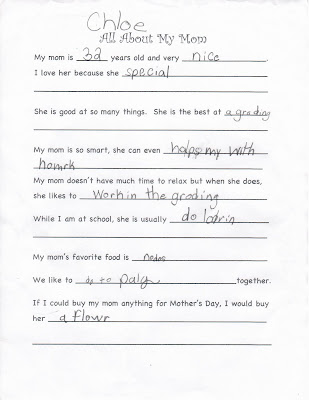 Chloe
All About My Mom
My mom is 32 years old and very nice.
I love her because she special
She is good at so many things. She is the best at a grading
My mom is so smart, she can even helps my with
homrk
My mom doesn't have much time to relax but when she does,
she likes to Workin the grading
While I am at school, she is usually do
My mom's favorite food is
We like to to together.
If I could buy my mom anything for Mother's Day, I would buy
her a flowr